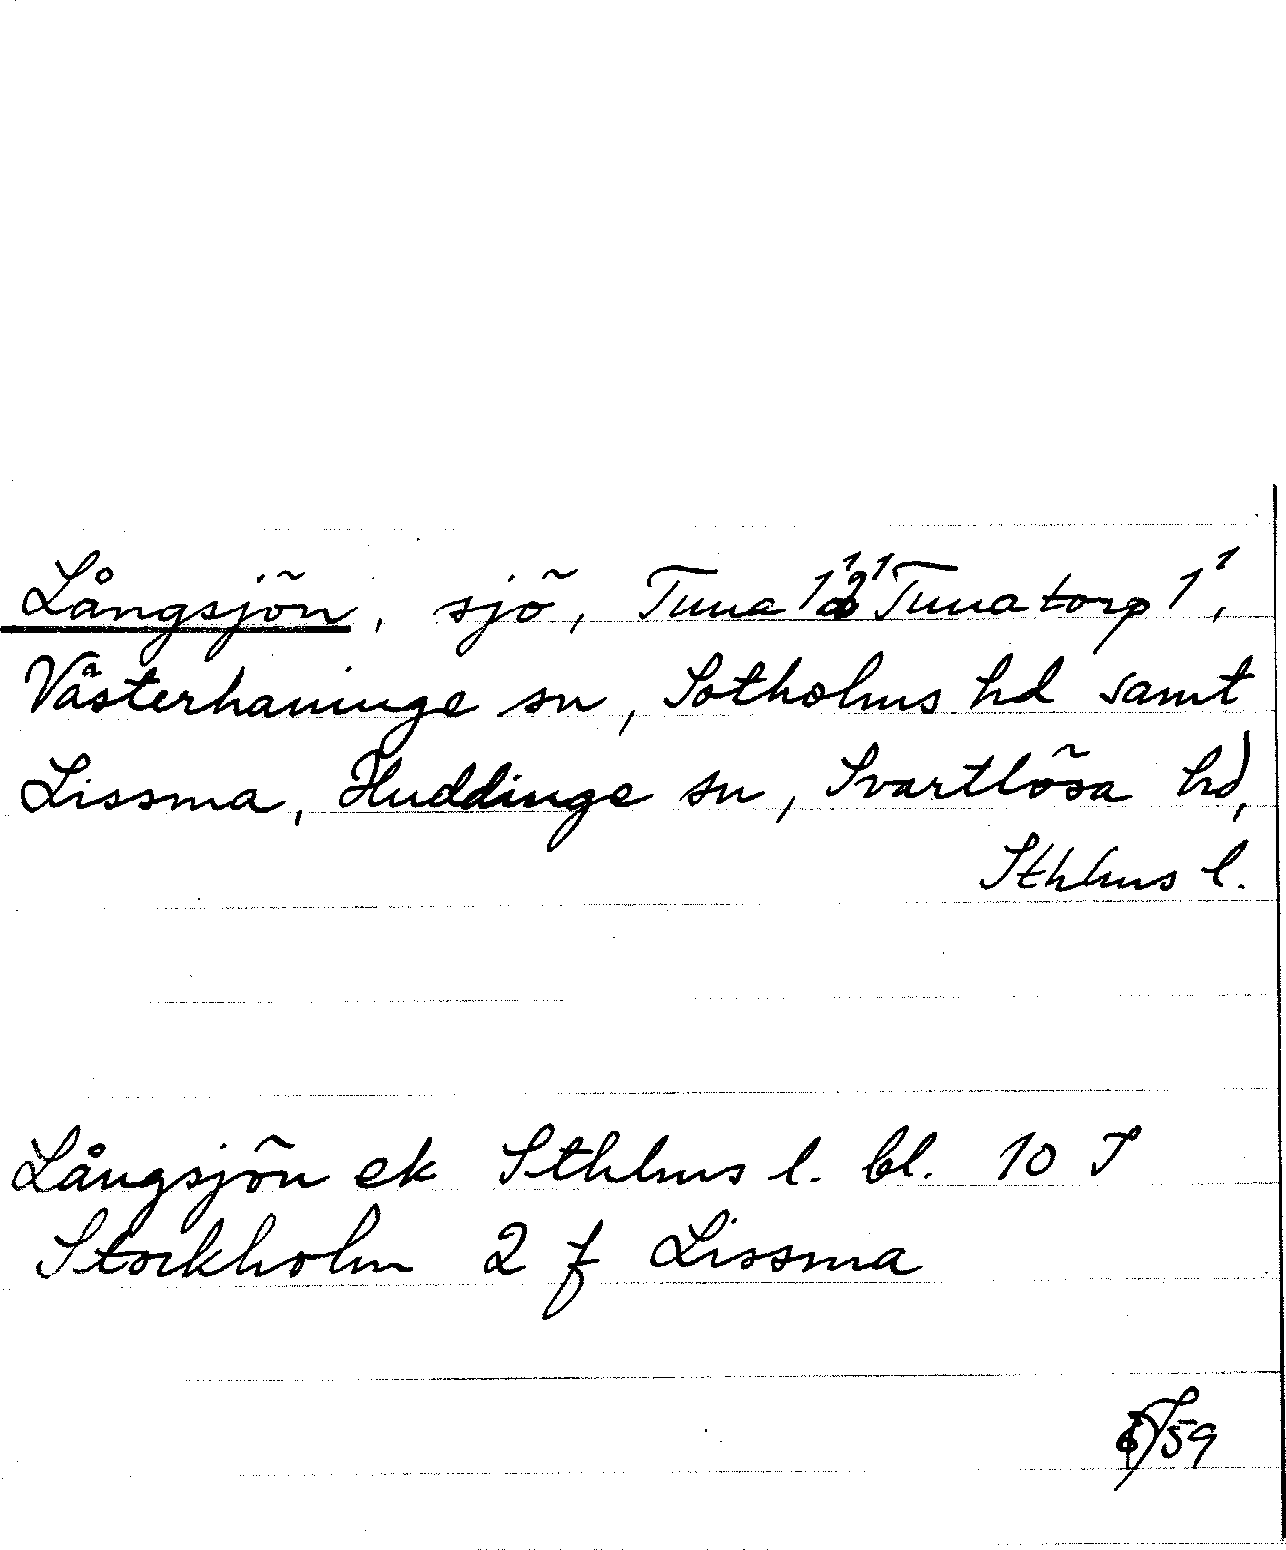 Långsjön, sjö, Tuna 1¹ 2¹ Tunatorp 1¹,
Västerhaninge sn, Sotholms hd samt
Lissma, Huddinge sn, Svartlösa hd,
Sthlms l.
Långsjön ek Sthlms l. bl. 10 J
Stockholm 2 f Lissma
59